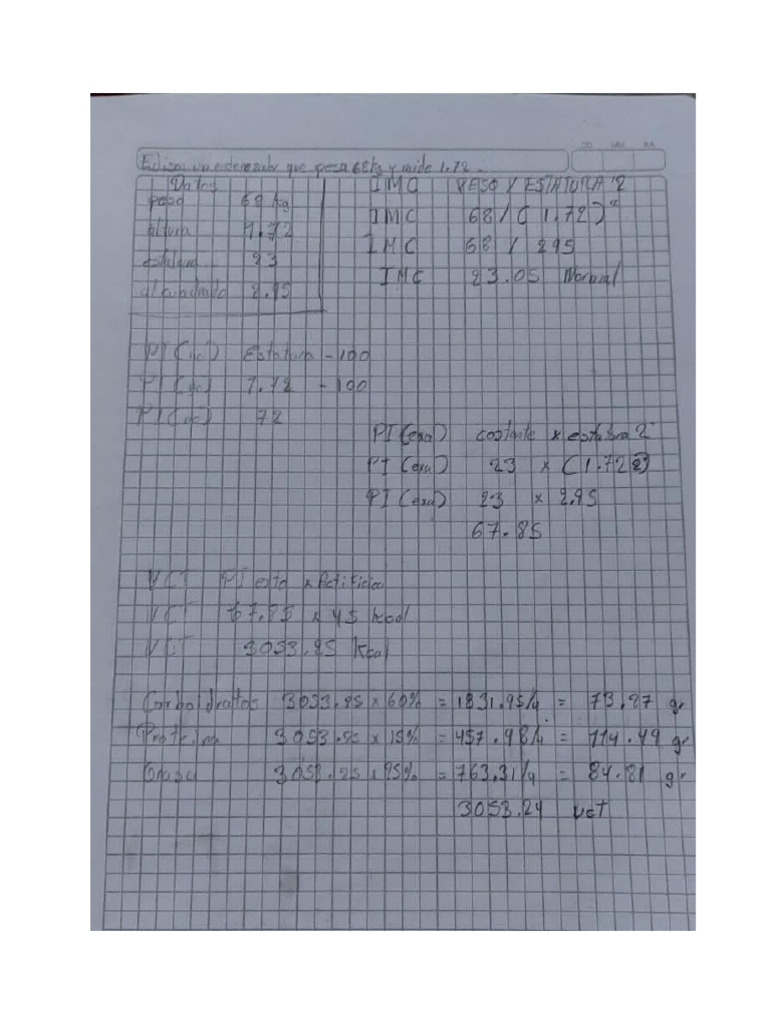 Edison un entrenador que pesa 68 kg y mide 1.72.
Datos
peso 68 kg
altura 1.72
estatura 23
al cuadrado 2.95
IMC PESO / ESTATURA 2
IMC 68 / (1.72)²
IMC 68 / 295
IMC 23.05 Normal
PI (ac) Estatura - 100
PI (ac) 1.72 - 100
PI (ac) 72
PI (exa) costante x estatura 2
PI (exa) 23 x (1.72 2)
PI (exa) 23 x 2.95
67.85
VCT PI exto x Actificica
VCT 67.85 x 45 kcal
VCT 3053.25 kcal
Carboidrattos 3053.25 x 60% = 1831.95/4 = 73.27 gr
Proteina 3053.25 x 15% = 457.98/4 = 114.49 gr
Grasa 3053.25 x 25% = 763.31/9 = 84.81 gr
3053.24 VCT